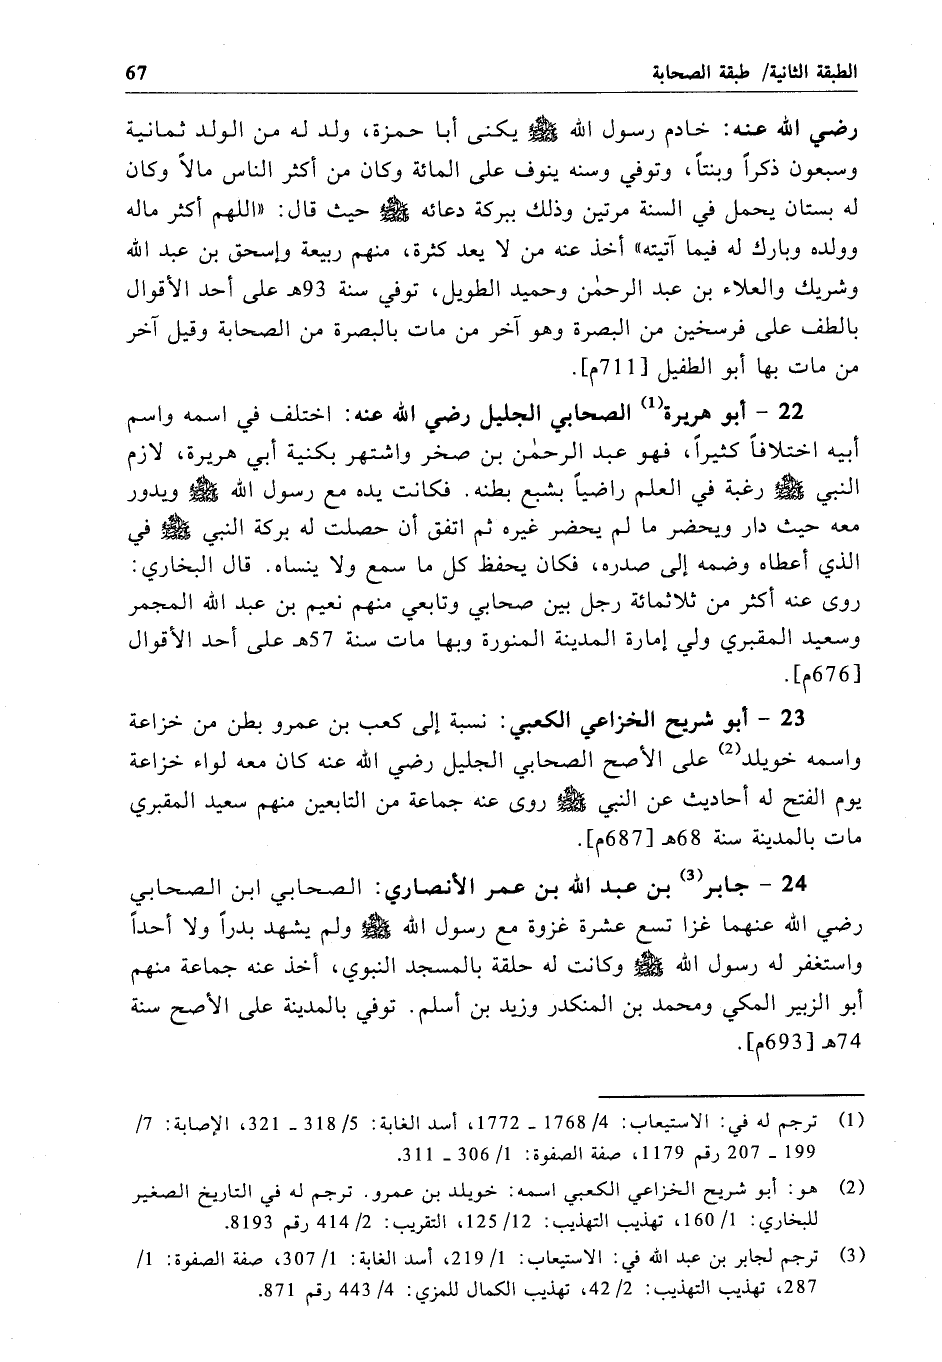 الطبقة الثانية/ طبقة الصحابة 67
رضي الله عنه: خادم رسول الله ﷺ يكنى أبا حمزة، ولد له من الولد ثمانية
وسبعون ذكراً وبنتاً، وتوفي وسنه ينوف على المائة وكان من أكثر الناس مالاً وكان
له بستان يحمل في السنة مرتين وذلك ببركة دعائه ﷺ حيث قال: «اللهم أكثر ماله
وولده وبارك له فيما آتيته» أخذ عنه من لا يعد كثرة، منهم ربيعة وإسحق بن عبد الله
وشريك والعلاء بن عبد الرحمٰن وحميد الطويل، توفي سنة 93هـ على أحد الأقوال
بالطف على فرسخين من البصرة وهو آخر من مات بالبصرة من الصحابة وقيل آخر
من مات بها أبو الطفيل [711م].
22 - أبو هريرة(1) الصحابي الجليل رضي الله عنه: اختلف في اسمه واسم
أبيه اختلافاً كثيراً، فهو عبد الرحمٰن بن صخر واشتهر بكنية أبي هريرة، لازم
النبي ﷺ رغبة في العلم راضياً بشبع بطنه. فكانت يده مع رسول الله ﷺ ويدور
معه حيث دار ويحضر ما لم يحضر غيره ثم اتفق أن حصلت له بركة النبي ﷺ في
الذي أعطاه وضمه إلى صدره، فكان يحفظ كل ما سمع ولا ينساه. قال البخاري:
روى عنه أكثر من ثلاثمائة رجل بين صحابي وتابعي منهم نعيم بن عبد الله المجمر
وسعيد المقبري ولي إمارة المدينة المنورة وبها مات سنة 57هـ على أحد الأقوال
[676م].
23 - أبو شريح الخزاعي الكعبي: نسبة إلى كعب بن عمرو بطن من خزاعة
واسمه خويلد(2) على الأصح الصحابي الجليل رضي الله عنه كان معه لواء خزاعة
يوم الفتح له أحاديث عن النبي ﷺ روى عنه جماعة من التابعين منهم سعيد المقبري
مات بالمدينة سنة 68هـ [687م].
24 - جابر(3) بن عبد الله بن عمر الأنصاري: الصحابي ابن الصحابي
رضي الله عنهما غزا تسع عشرة غزوة مع رسول الله ﷺ ولم يشهد بدراً ولا أحداً
واستغفر له رسول الله ﷺ وكانت له حلقة بالمسجد النبوي، أخذ عنه جماعة منهم
أبو الزبير المكي ومحمد بن المنكدر وزيد بن أسلم. توفي بالمدينة على الأصح سنة
74هـ [693م].
(1) ترجم له في: الاستيعاب: 4/ 1768 ـ 1772، أسد الغابة: 5/ 318 ـ 321، الإصابة: 7/
199 ـ 207 رقم 1179، صفة الصفوة: 1/ 306 ـ 311.
(2) هو: أبو شريح الخزاعي الكعبي اسمه: خويلد بن عمرو. ترجم له في التاريخ الصغير
للبخاري: 1/ 160، تهذيب التهذيب: 12/ 125، التقريب: 2/ 414 رقم 8193.
(3) ترجم لجابر بن عبد الله في: الاستيعاب: 1/ 219، أسد الغابة: 1/ 307، صفة الصفوة: 1/
287، تهذيب التهذيب: 2/ 42، تهذيب الكمال للمزي: 4/ 443 رقم 871.